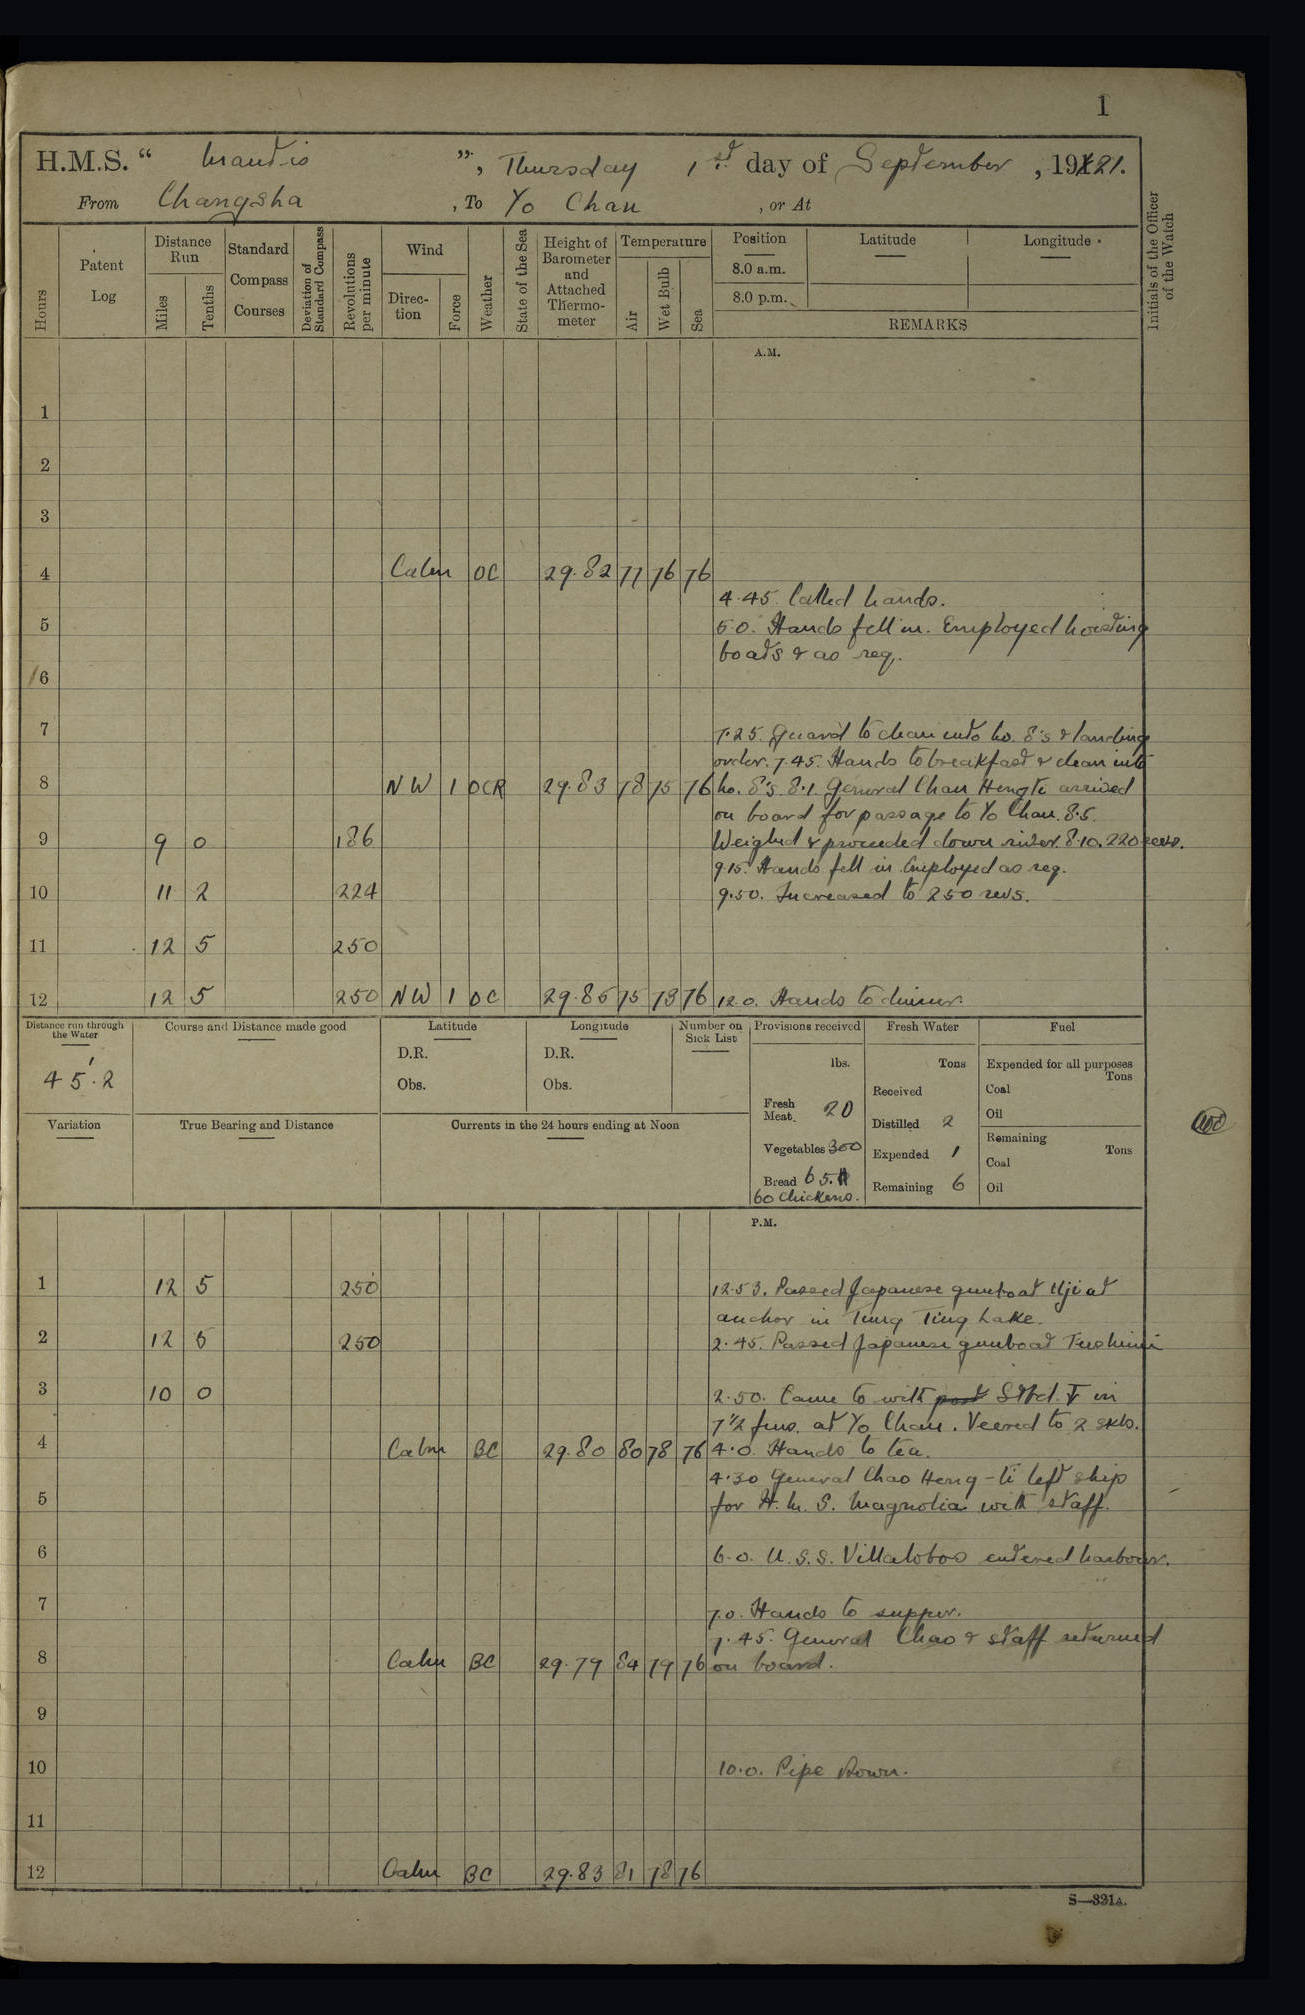 1
H.M.S. " Mantis ", Thursday 1st day of September, 1921.
From Changsha, To Yo Chau, or At
Hours
Patent Log
Distance Run
Miles
Tenths
Standard Compass Courses
Deviation of Standard Compass
Revolutions per minute
Wind
Direc-tion
Force
Weather
State of the Sea
Height of Barometer and Attached Thermo-meter
Temperature
Air
Wet Bulb
Sea
Position
8.0 a.m.
8.0 p.m.
Latitude
Longitude
REMARKS
Initials of the Officer of the Watch
A.M.
1
2
3
4 Calm OC 29.82 77 76 76
4.45. Called hands.
5 5.0. Hands fell in. Employed hoisting
boats & as req.
6
7 7.25. Guard to clean into No. 8's & landing
order. 7.45. Hands to breakfast & clean into
8 NW 1 OCR 29.83 78 75 76 No. 8's. 8.1. General Chau Hengti arrived
on board for passage to Yo Chau. 8.5.
9 9 0 186 Weighed & proceeded down river. 8.10. 220 revs.
9.15. Hands fell in. Employed as req.
10 11 2 224 9.50. Increased to 250 revs.
11 12 5 250
12 12 5 250 NW 1 OC 29.85 75 73 76 12.0. Hands to dinner.
Distance run through the Water
45'.2
Course and Distance made good
Latitude
D.R.
Obs.
Longitude
D.R.
Obs.
Number on Sick List
Provisions received
lbs.
Fresh Meat. 20
Vegetables 300
Bread 65.
60 Chickens.
Fresh Water
Tons
Received
Distilled 2
Expended 1
Remaining 6
Fuel
Expended for all purposes
Tons
Coal
Oil
Remaining
Tons
Coal
Oil
Variation
True Bearing and Distance
Currents in the 24 hours ending at Noon
P.M.
1 12 5 250 12.53. Passed Japanese gunboat Uji at
anchor in Tung Ting Lake.
2 12 5 250 2.45. Passed Japanese gunboat Fushimi
3 10 0 2.50. Came to with port Stbd. ⚓ in
7½ fms. at Yo Chau. Veered to 2 skls.
4 Calm BC 29.80 80 78 76 4.0. Hands to tea.
4.30 General Chao Heng-ti left ship
5 for H.M.S. Magnolia with staff.
6 6.0. U.S.S. Villalobos entered harbour.
7 7.0. Hands to supper.
7.45. General Chao & staff returned
8 Calm BC 29.79 84 79 76 on board.
9
10 10.0. Pipe Down.
11
12 Calm BC 29.83 81 78 76
S—321A.